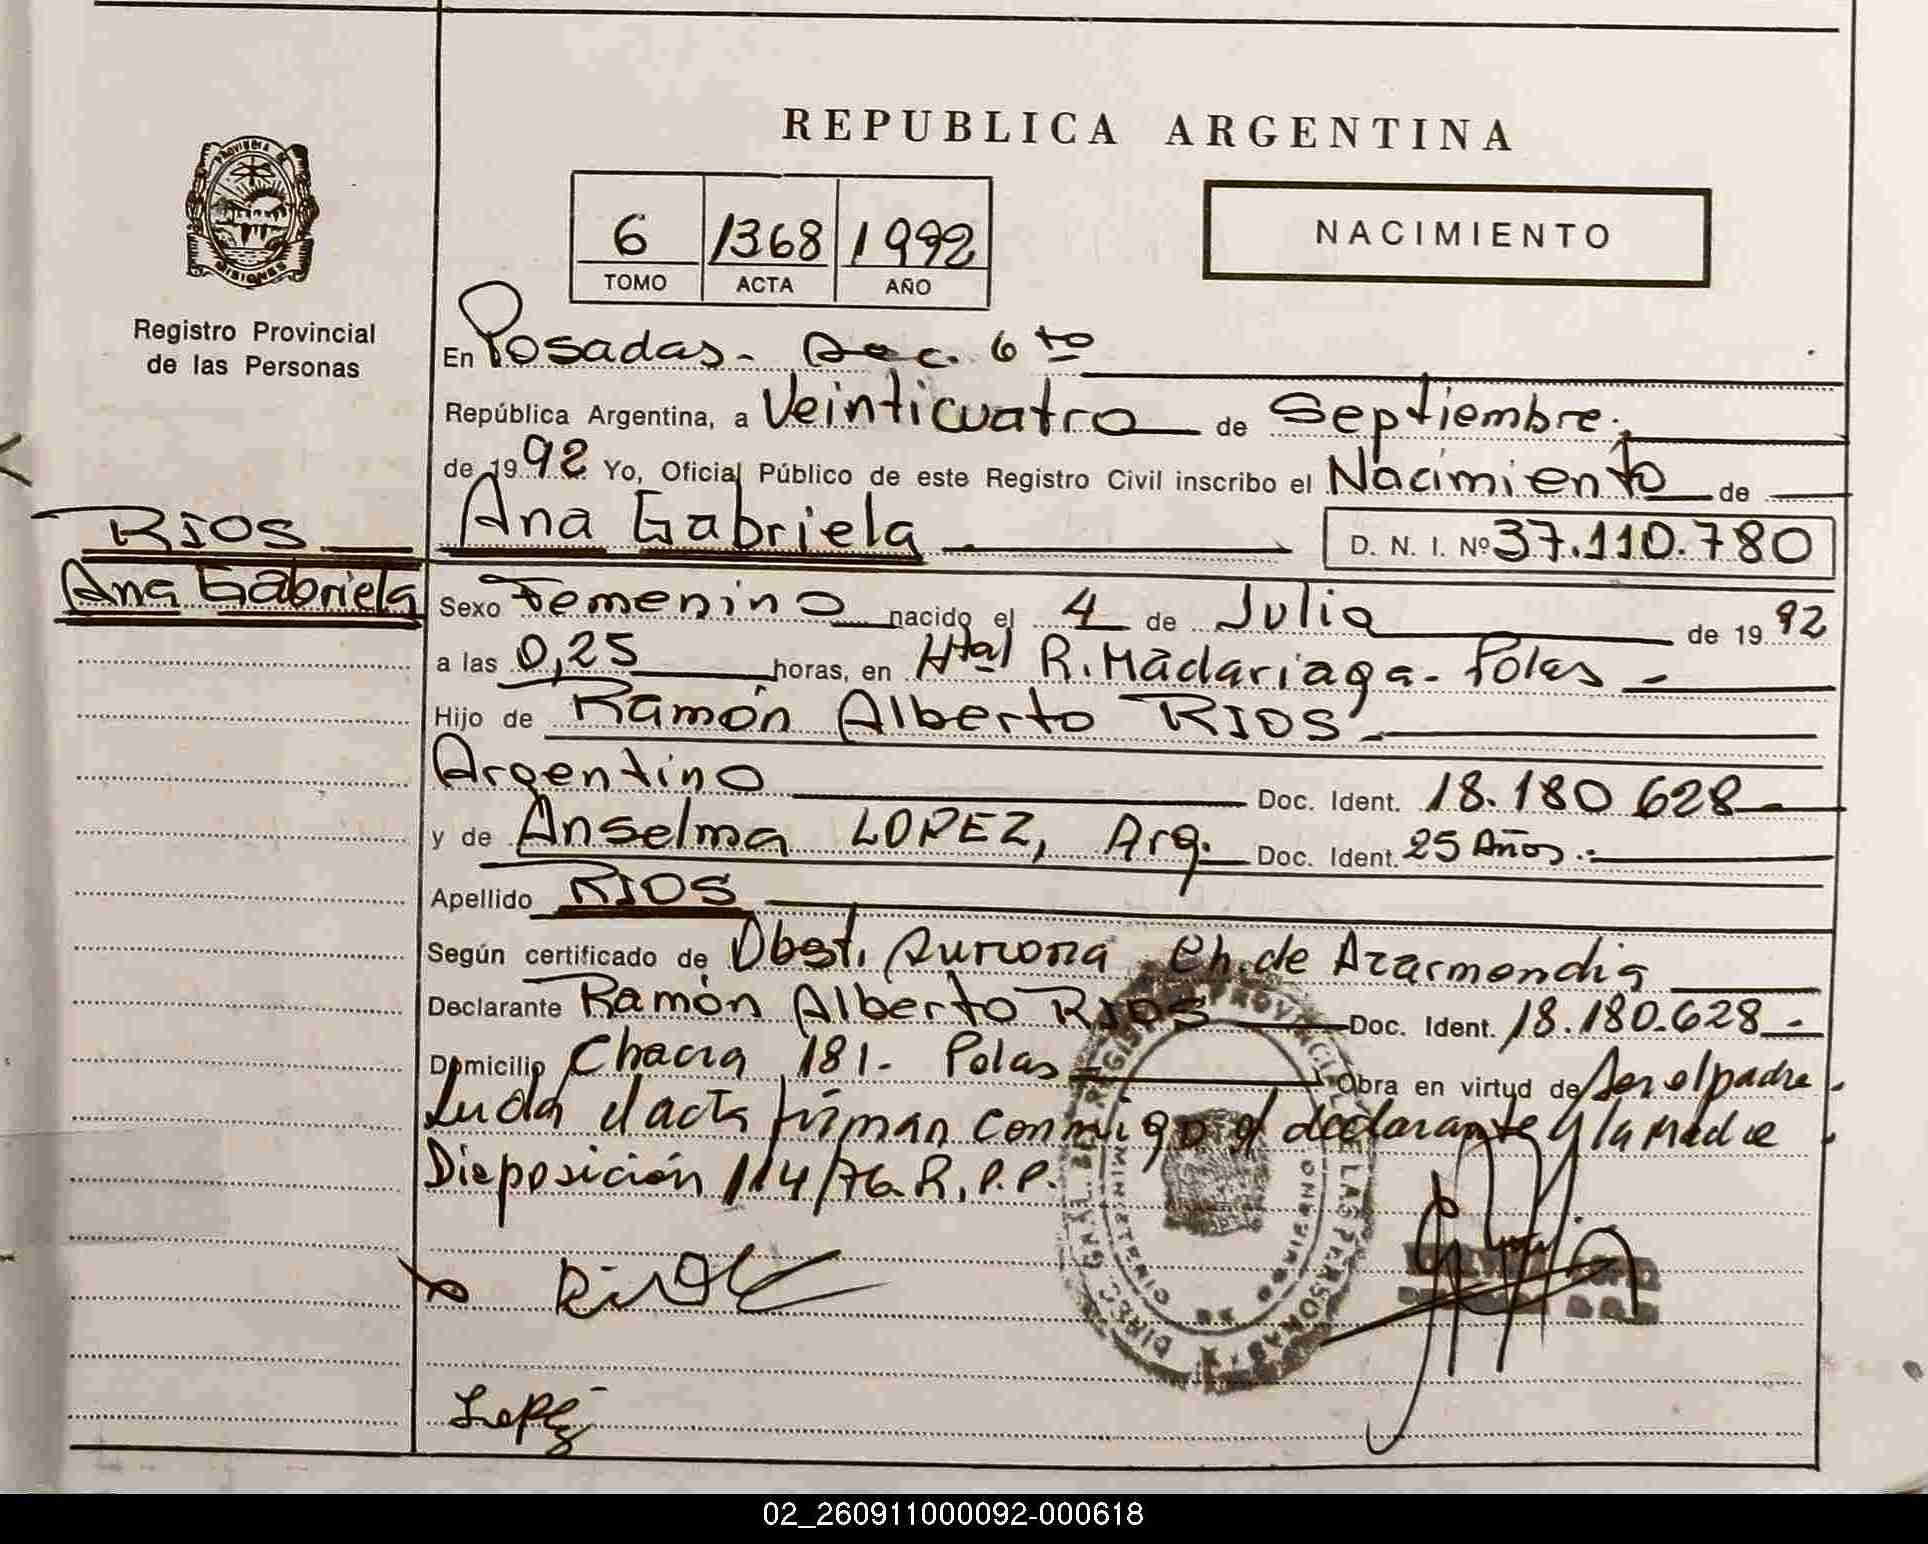 REPUBLICA ARGENTINA
PROVINCIA DE
MISIONES
Registro Provincial
de las Personas
6 1368 1992
TOMO ACTA AÑO
NACIMIENTO
En Posadas - Sec. 6to
República Argentina, a Veinticuatro de Septiembre
de 1992 Yo, Oficial Público de este Registro Civil inscribo el Nacimiento de
RIOS
Ana Gabriela
Ana Gabriela D. N. I. Nº 37.110.780
Sexo Femenino nacido el 4 de Julio de 1992
a las 0,25 horas, en Htal R. Madariaga - Pdas -
Hijo de Ramón Alberto RIOS
Argentino Doc. Ident. 18.180 628 -
y de Anselma LOPEZ, Arg. Doc. Ident. 25 Años.-
Apellido RIOS
Según certificado de Obst. Aurora Ch. de Azarmendia
Declarante Ramón Alberto RIOS Doc. Ident. 18.180.628 -
Domicilio Chacra 181 - Pdas Obra en virtud de Ser el padre.
Leída el acta firman conmigo el declarante y la madre.
Disposición 114/76 R.P.P.
DIREC. GRAL. DEL REGISTRO PROVINCIAL DE LAS PERSONAS
MINISTERIO DE GOBIERNO
Lopez
02_260911000092-000618